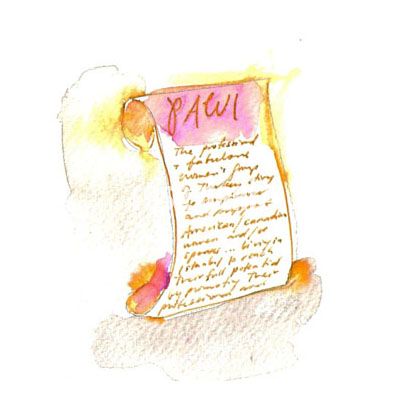 PAWI
The professional
& fabulous
women's group
of Thinkers trying
to empower
and support
American/canadian
women and/or
spouses... living in
Istanbul to reach
their full potential
by promoting Their
professional and